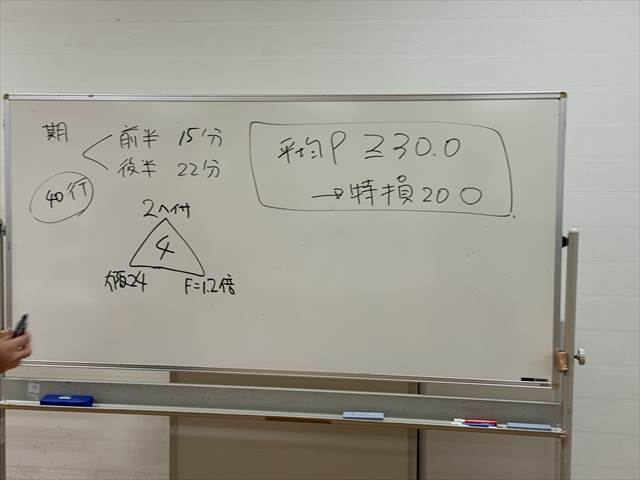 期
前半 15分
後半 22分
40行
平均P ≧30.0
→特損200
2ペイ付
4
大商24
F=1.2倍